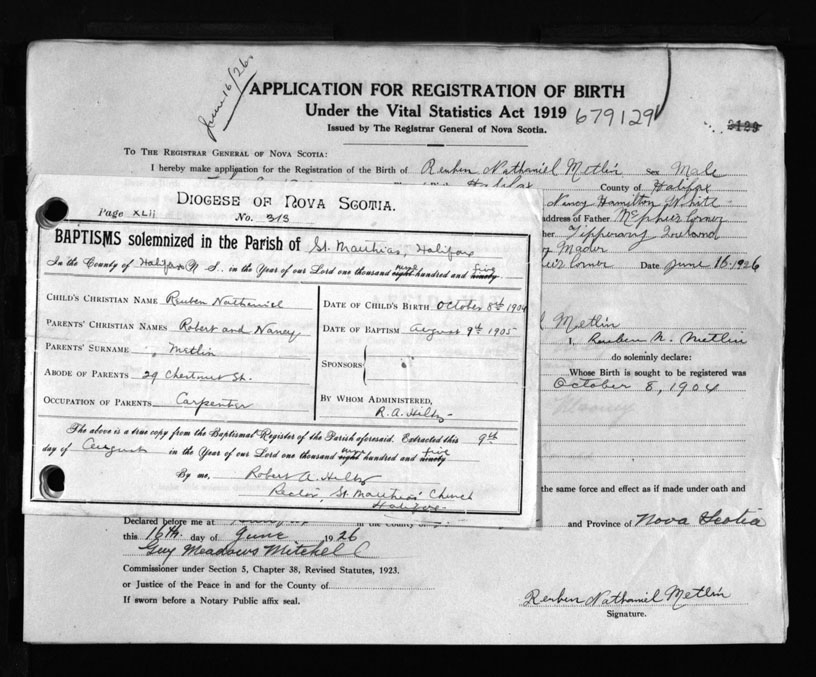 June 16/26.
APPLICATION FOR REGISTRATION OF BIRTH
Under the Vital Statistics Act 1919 679129
Issued by The Registrar General of Nova Scotia.
TO THE REGISTRAR GENERAL OF NOVA SCOTIA:
I hereby make application for the Registration of the Birth of Reuben Nathaniel Metlin Sex Male
County of Halifax
Nancy Hamilton White
address of Father
Tipperary Ireland
Mader
Corner Date June 16. 1926
Metlin
I, Reuben N. Metlin
do solemnly declare:
Whose Birth is sought to be registered was
October 8, 1904
the same force and effect as if made under oath and
Declared before me at in the County of and Province of Nova Scotia
this 16th day of June 1926
Guy Meadows Mitchell
Commissioner under Section 5, Chapter 38, Revised Statutes, 1923.
or Justice of the Peace in and for the County of
If sworn before a Notary Public affix seal.
Reuben Nathaniel Metlin
Signature.
DIOCESE OF NOVA SCOTIA.
Page XLII No. 313
BAPTISMS solemnized in the Parish of St. Matthias, Halifax
In the County of Halifax N. S., in the Year of our Lord one thousand eight nine hundred and ninety five
CHILD'S CHRISTIAN NAME Reuben Nathaniel
PARENTS' CHRISTIAN NAMES Robert and Nancy
PARENTS' SURNAME Metlin
ABODE OF PARENTS 29 Chestnut St.
OCCUPATION OF PARENTS Carpenter
DATE OF CHILD'S BIRTH October 8th 1904
DATE OF BAPTISM August 9th 1905
SPONSORS
BY WHOM ADMINISTERED,
R. A. Hiltz
The above is a true copy from the Baptismal Register of the Parish aforesaid. Extracted this 9th
day of August in the Year of our Lord one thousand eight nine hundred and ninety five
By me, Robert A. Hiltz
Rector, St. Matthias' Church
Halifax